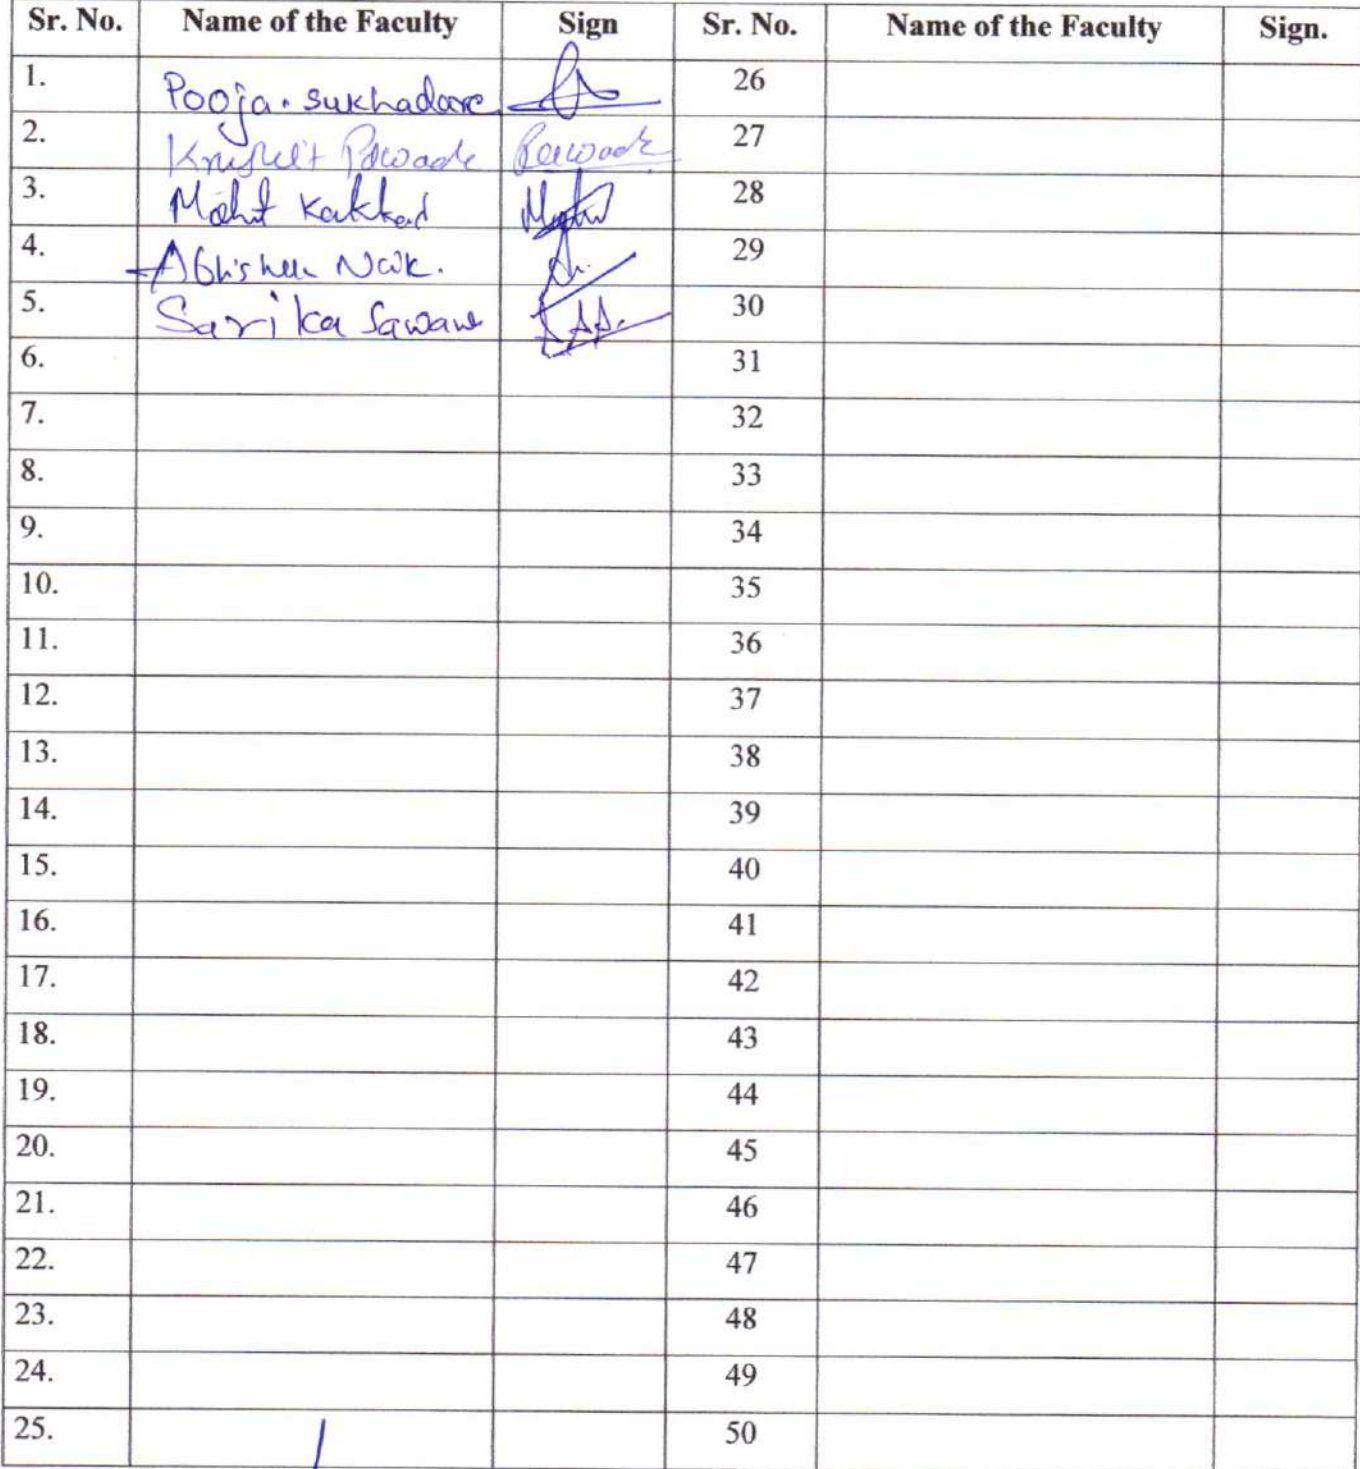 Sr. No. Name of the Faculty Sign Sr. No. Name of the Faculty Sign.
1. Pooja. Sukhadare 26
2. Pawade Pawade 27
3. Mohit Kakkad 28
4. Abhishek Naik. 29
5. Sarika Sawane 30
6. 31
7. 32
8. 33
9. 34
10. 35
11. 36
12. 37
13. 38
14. 39
15. 40
16. 41
17. 42
18. 43
19. 44
20. 45
21. 46
22. 47
23. 48
24. 49
25. 50